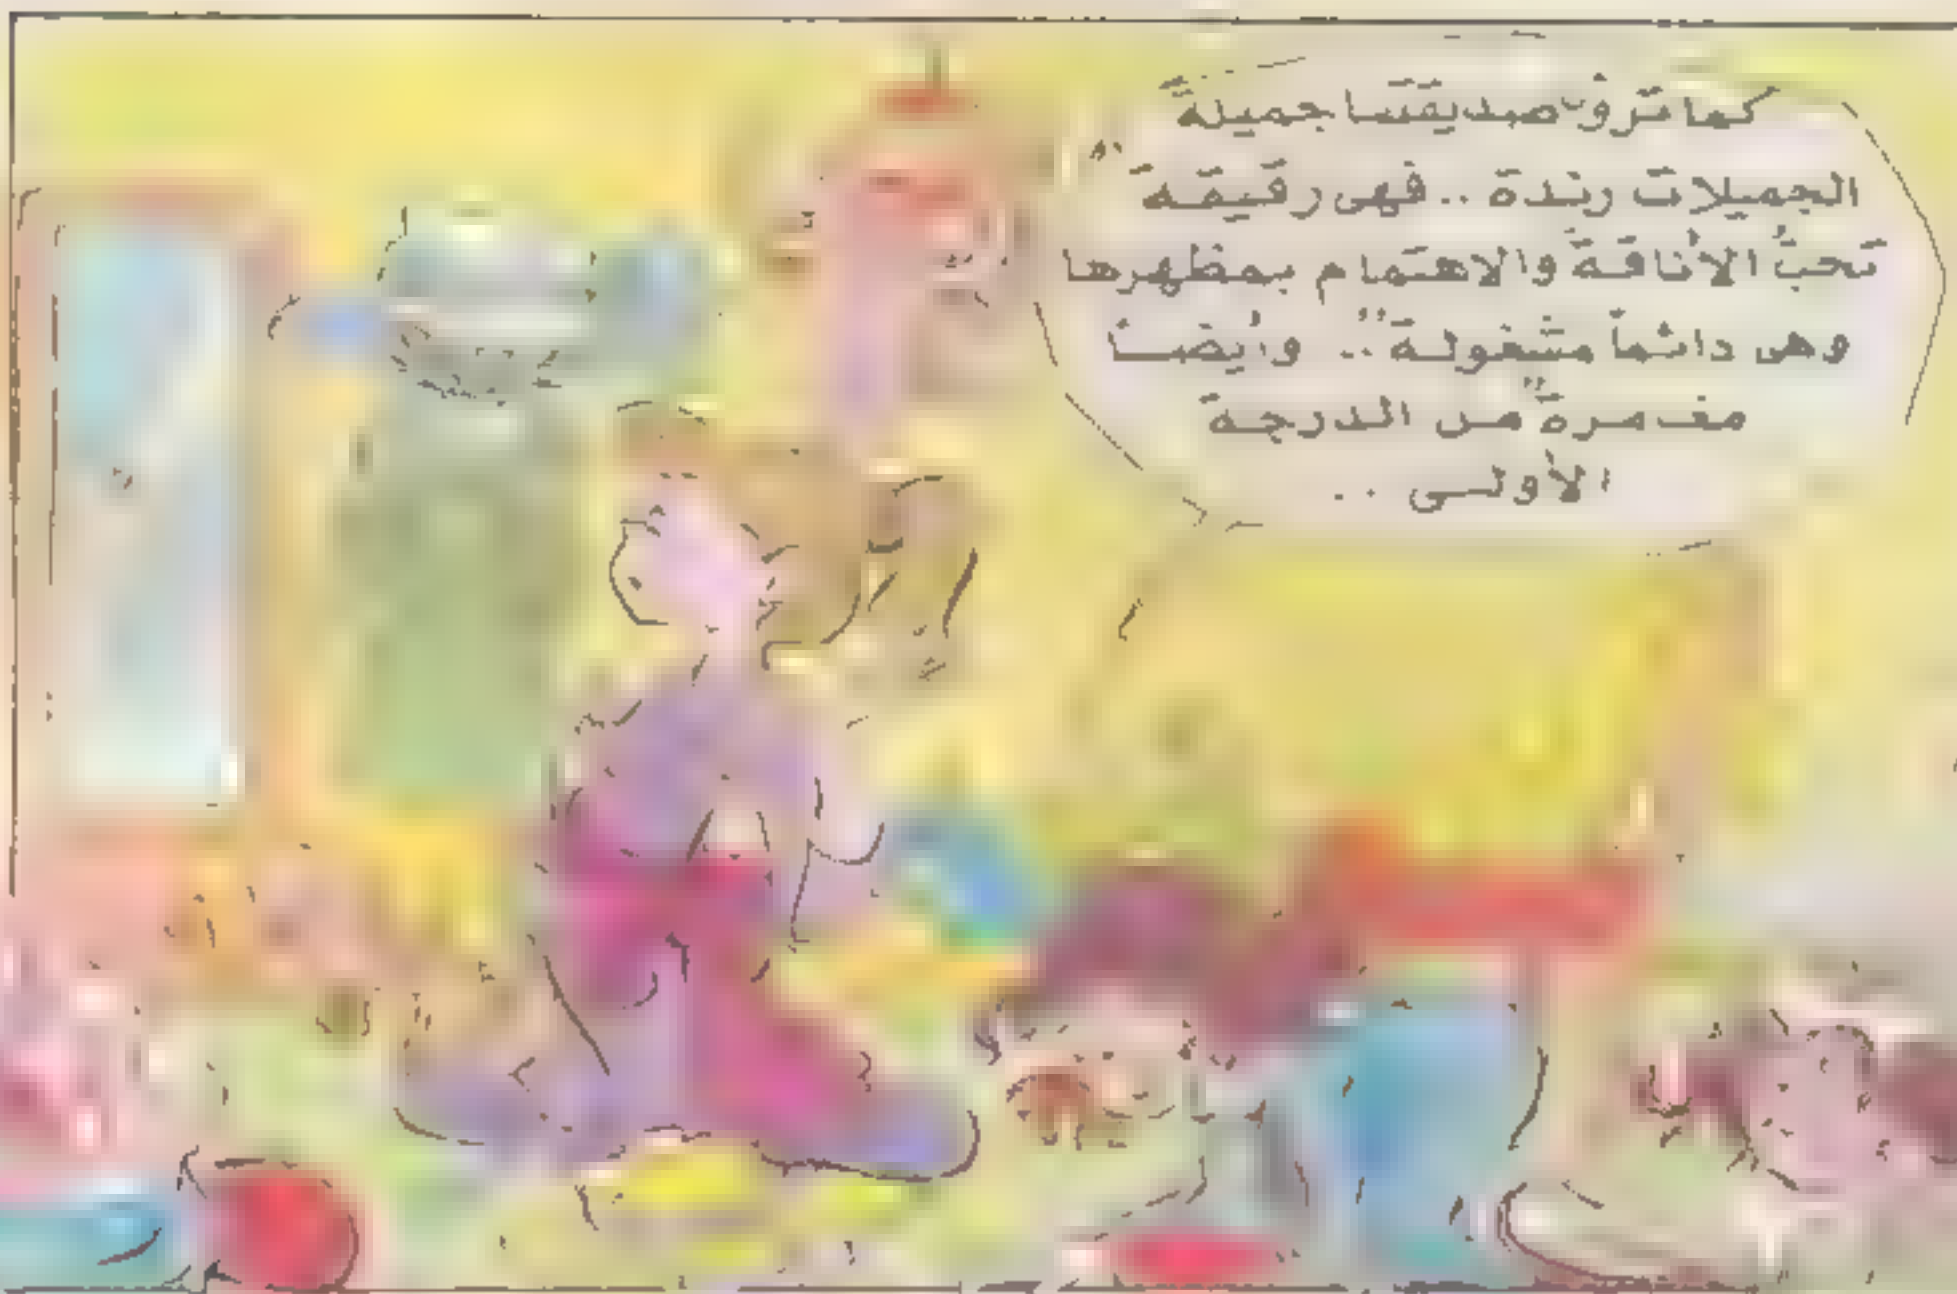 كما ترون صديقتنا جميلة
الجميلات رندة .. فهى رقيقة
تحبُّ الأناقة والاهتمام بمظهرها
وهى دائماً مشغولة .. وأيضاً
مغامرة من الدرجة
الأولى ..